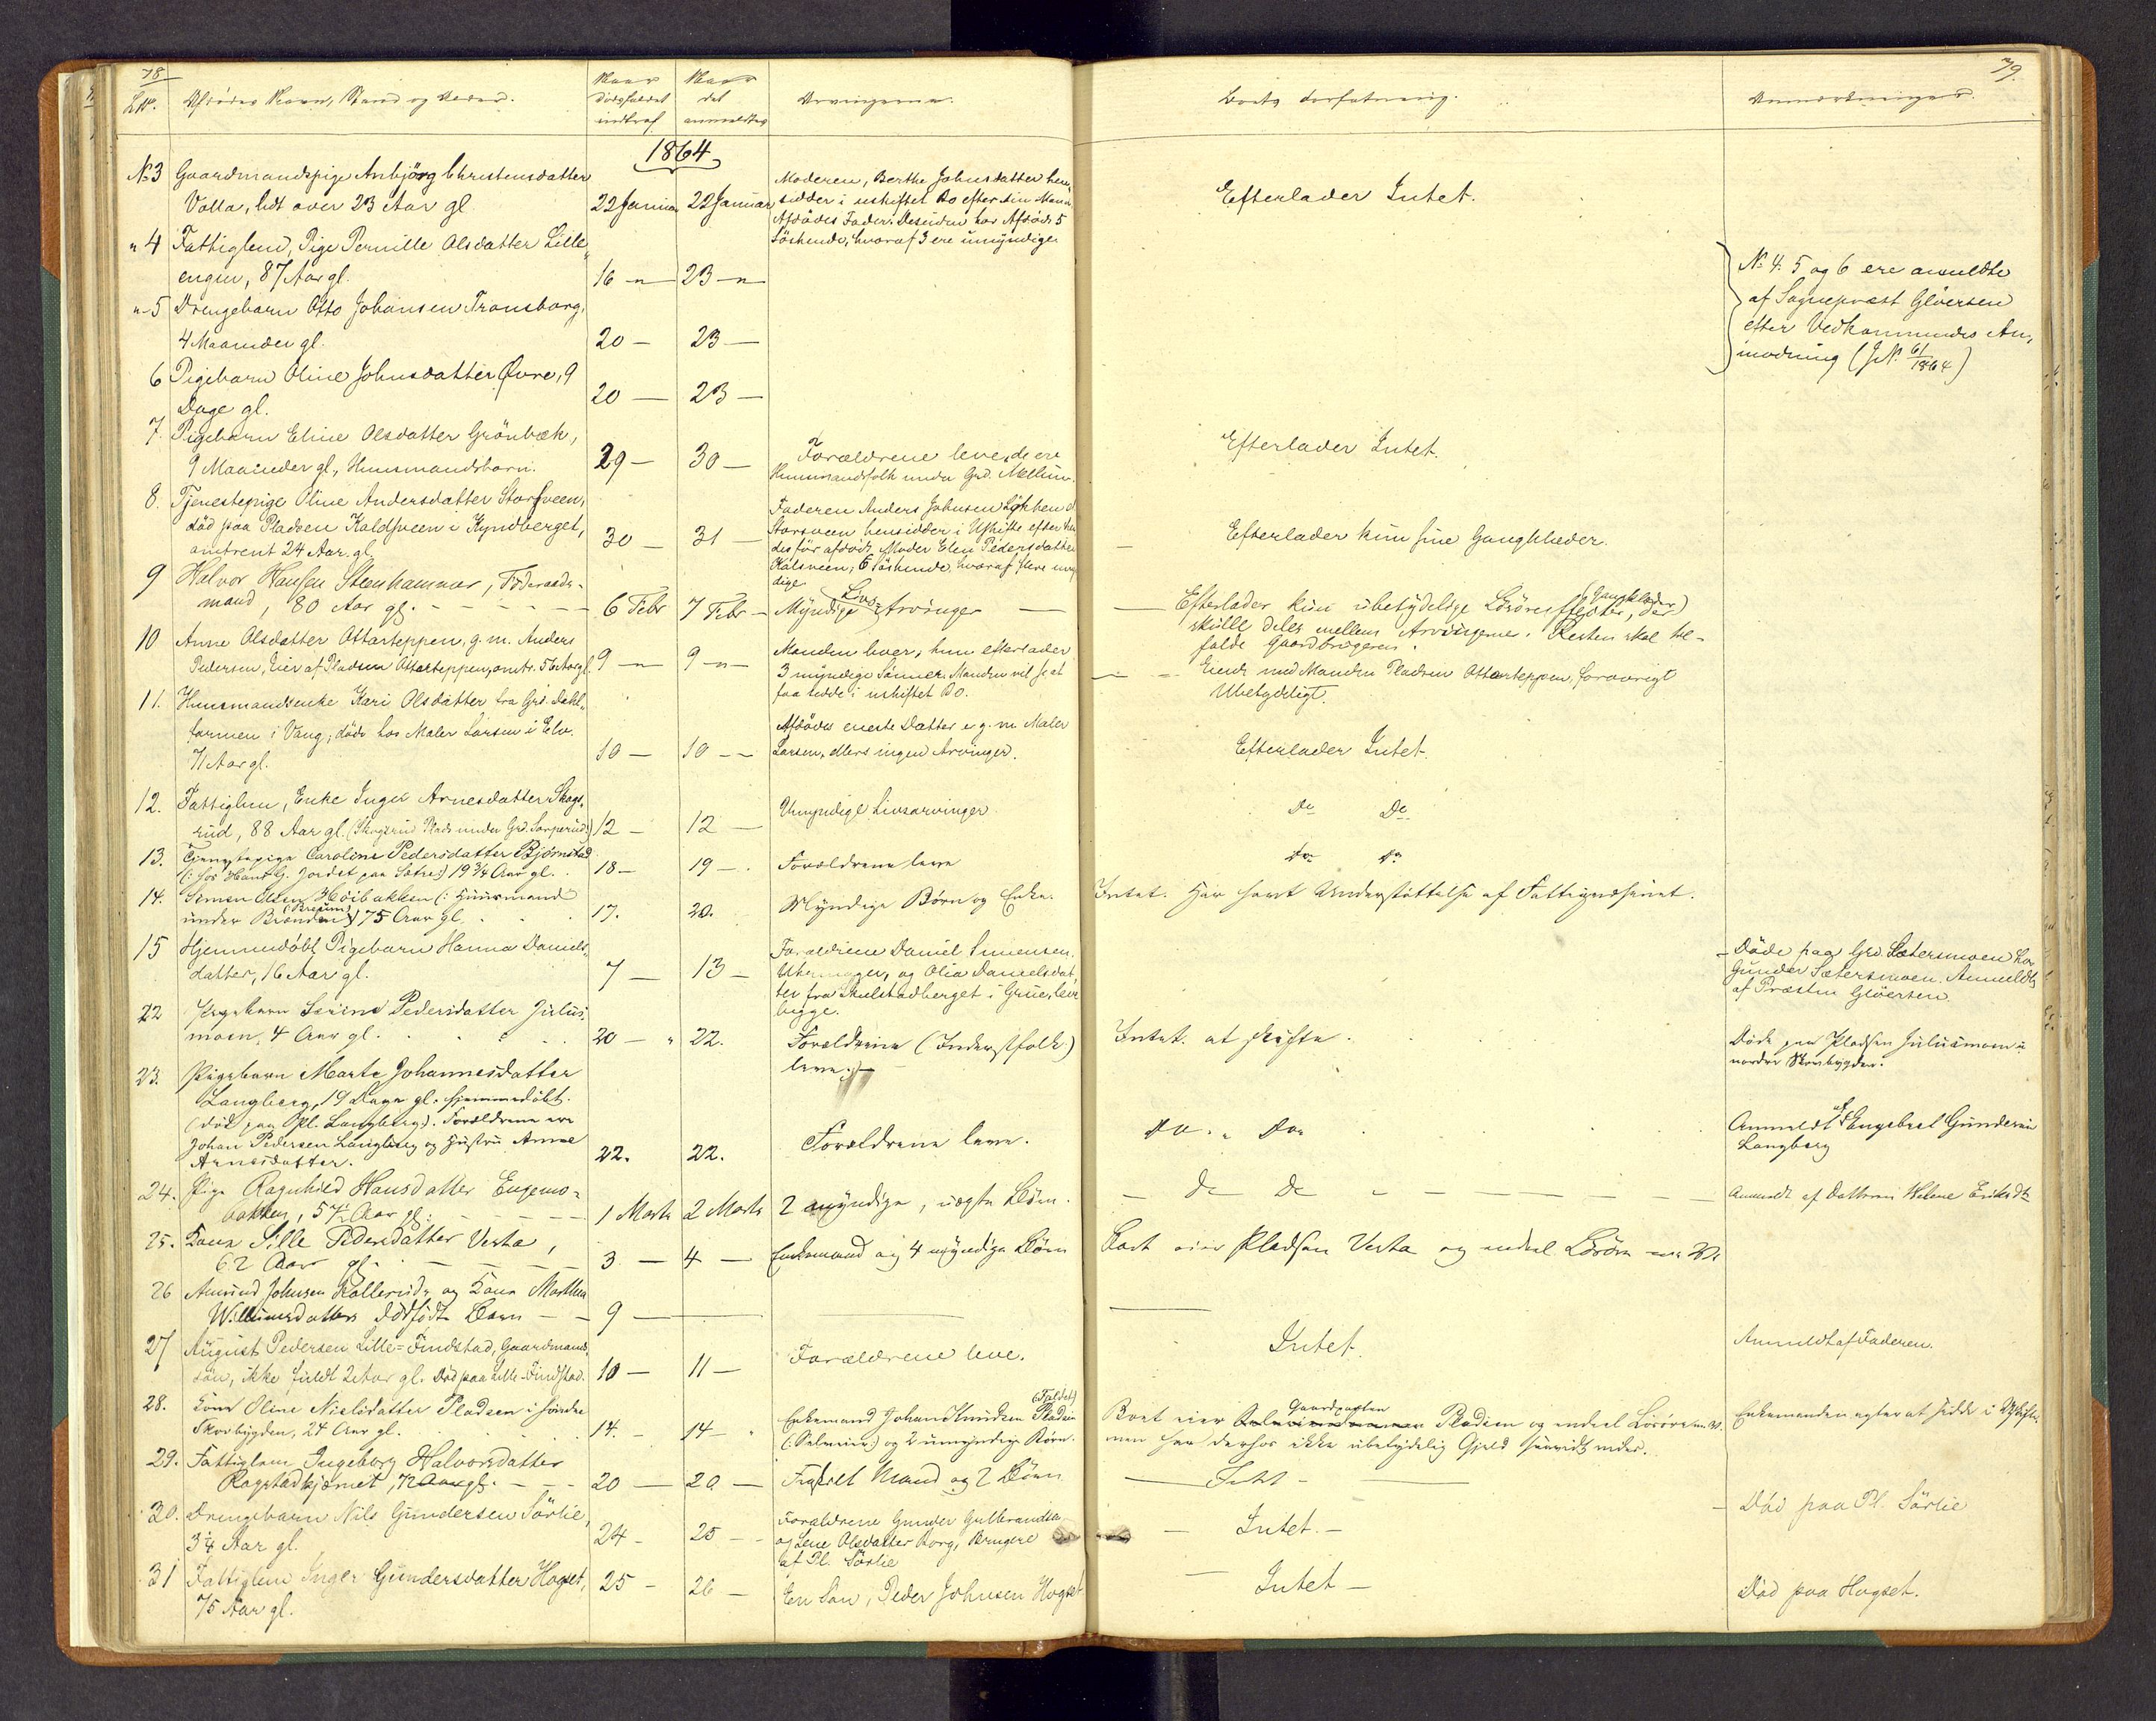 78
LNo.
Afdødes Navn, Stand og Alder.
Naar
Dødsfaldet
indtraf
Naar
det
anmeldtes
Arvingerne.
Boets Forfatning.
Anmærkninger.
79.
1864
No 3 Gaardmandspige Anbjörg Christensdatter
Valla, lidt over 23 Aar gl
22 Januar 22 Januar
Moderen, Berthe Johnsdatter hen-
sidder i uskiftet Bo efter sin Mand
Afdödes Fader. Desuden har Afdöde 5
Söskende, hvoraf 3 ere umyndige
Efterlader Intet.
" 4 Fattiglem, Pige Pernille Olsdatter Lille
engen, 87 Aar gl.
16 - " - 23 - " -
No 4. 5 og 6 ere anmeldte
af Sognepræst Glöersen
efter Vedkommendes An-
modning (J.N. 61/1864)
" 5 Drengebarn Otto Johansen Transborg,
4 Maaneder gl.
20 - 23 -
6 Pigebarn Oline Johnsdatter Øvre, 9
Dage gl.
20 - 23 -
7. Pigebarn Eline Olsdatter Grönbæk,
9 Maaneder gl, Huusmandsbarn.
29 - 30 -
Forældrene leve, de ere
Huusmandsfolk under Grd. Mellum.
Efterlader Intet.
8. Tjenestepige Oline Andersdatter Storsveen,
död paa Pladsen Kaldsveen i Kyndberget,
omtrent 24 Aar gl,
30 - 31 -
Faderen Anders Johnsen Løkken el.
Storsveen hensidder i Uskifte efter hen
des för afdöde Moder Elen Pedersdatter
Kalsveen; 6 Söskende, hvoraf flere umyn
dige
Efterlader kun sine Gangklæder.
9 Halvor Hansen Steenhammer, Föderaads-
mand, 80 Aar gl. -
6 Febr 7 Febr -
Myndige Livs-Arvinger
Efterlader kun ubetydelige Lösöreeffecter, (Gangklæder) der
skulle deles mellem Arvingerne. Resten skal til-
falde Gaardbrugeren.
10 Anne Olsdatter Ottarteppen, g. m. Anders
Pedersen, Eier af Pladsen Ottarteppen, omtr. 56 Aar gl.
9 - " - 9 - " -
Manden lever, hun efterlader
3 myndige Sönner. Manden vil se at
faa sidde i uskiftet Bo.
Eiende med Manden Pladsen Ottarteppen, forövrigt
Ubetydeligt.
11. Huusmandsenke Kari Olsdatter fra Grd. Dahl-
farmen i Vang; döde hos Maler Larsen i Elv.
71 Aar gl.
10 - 10 - -
Afdödes eneste Datter er g. m. Maler
Larsen, ellers ingen Arvinger.
Efterlader Intet
12. Fattiglem, Enke Inger Arnesdatter Skogs-
rud, 88 Aar gl. (Skogsrud Plads under Grd. Sorperud)
12 - 12 -
Umyndige Livsarvinger
Do Do
13. Tjenestepige Caroline Pedersdatter Bjørnstad
(: hos Hans G. Jordet paa Sætre:) 19 3/4 Aar gl.
18 - 19 -
Forældrene leve
Do Do
14. Simen Olsen Höibakken (: Huusmand
under Brænden) (Braum) 75 Aar gl
17. 20.
Myndige Børn og Enke.
Intet. Har havt Understøttelse af Fattigvæsenet.
15 Hjemmedöbt Pigebarn Hanna Daniels-
datter, 16 Aar gl.
7 - 13 -
Forældrene Daniel Simensen
Uhrmager, og Olia Danielsdat
ter fra Skulstadberget i Grue, leve
begge.
Döde paa Grd Sætersmoen hos
Gunder Sætersmoen. Anmeldt
af Præsten Glöersen
22 Pigebarn Lovine Pedersdatter Julius-
moen, 4 Aar gl.
20 - " 22.
Forældrene (Inderstfolk)
leve.
Intet at skifte.
Døde paa Pladsen Juliusmoen i
nordre Skovbygden.
23. Pigebarn Marte Johannesdatter
Langberg, 19 Dage gl. hjemmedöbt.
(död paa Pl. Langberg). Forældrene ere
Johan Pedersen Langberg og Hustru Anne
Arnesdatter.
22. 22.
Forældrene leve.
Do. " Do.
Anmeldt af Engebret Gundersen
Langberg
24. Pige Ragnhild Hansdatter Engemo-
bakken, 57 1/2 Aar gl:
1 Marts 2 Marts
2 myndige, uægte Børn.
Do Do
Anmeldt af Datteren Helene Eriksdt
25. Kone Sille Pedersdatter Vesta,
62 Aar gl.
3 - 4 -
Enkemand og 4 myndige Børn
Boet eier Pladsen Vesta og endeel Lösöre m. V.
26 Amund Johnsen Kollerud og Kone Marthea
Willumsdatters dødfødte Barn
9
27 August Pedersen Lille-Findstad, Gaardmands
sön, ikke fuldt 2 Aar gl. Död paa Lille-Findstad.
10 - 11 -
Forældrene leve.
Intet
Anmeldt af Faderen.
28. Kone Oline Nielsdatter Pladsen i søndre
Skovbygden, 24 Aar gl.
14. - 14 - "
Enkemand Johan Knudsen Pladsen (Faldet)
(: Selveier:) og 2 umyndige Børn.
Boet eier Gaardparten Pladsen og endeel Lösöre m. V.
men har derhos ikke ubetydelig Gjeld saavidt vides.
Enkemanden agter at sidde i Uskifte.
29. Fattiglem Ingeborg Halvorsdatter
Rogstadkjernet, 72 Aar gl.
20 - 20 -
Fraskilt Mand og 2 Børn
Intet -
30. Drengebarn Nils Gundersen Sörlie,
3 1/4 Aar gl.
24 - 25 -
Forældrene Gunder Gulbrandsen
og Lene Olsdatter Borg, Brugere
af Pl. Sörlie
- Intet. -
Död paa Pl. Sörlie
31 Fattiglem Inger Gundersdatter Hogset,
75 Aar gl.
25 - 26 -
En Sön, Peder Johnsen Hogset
- Intet -
Död paa Hogset.